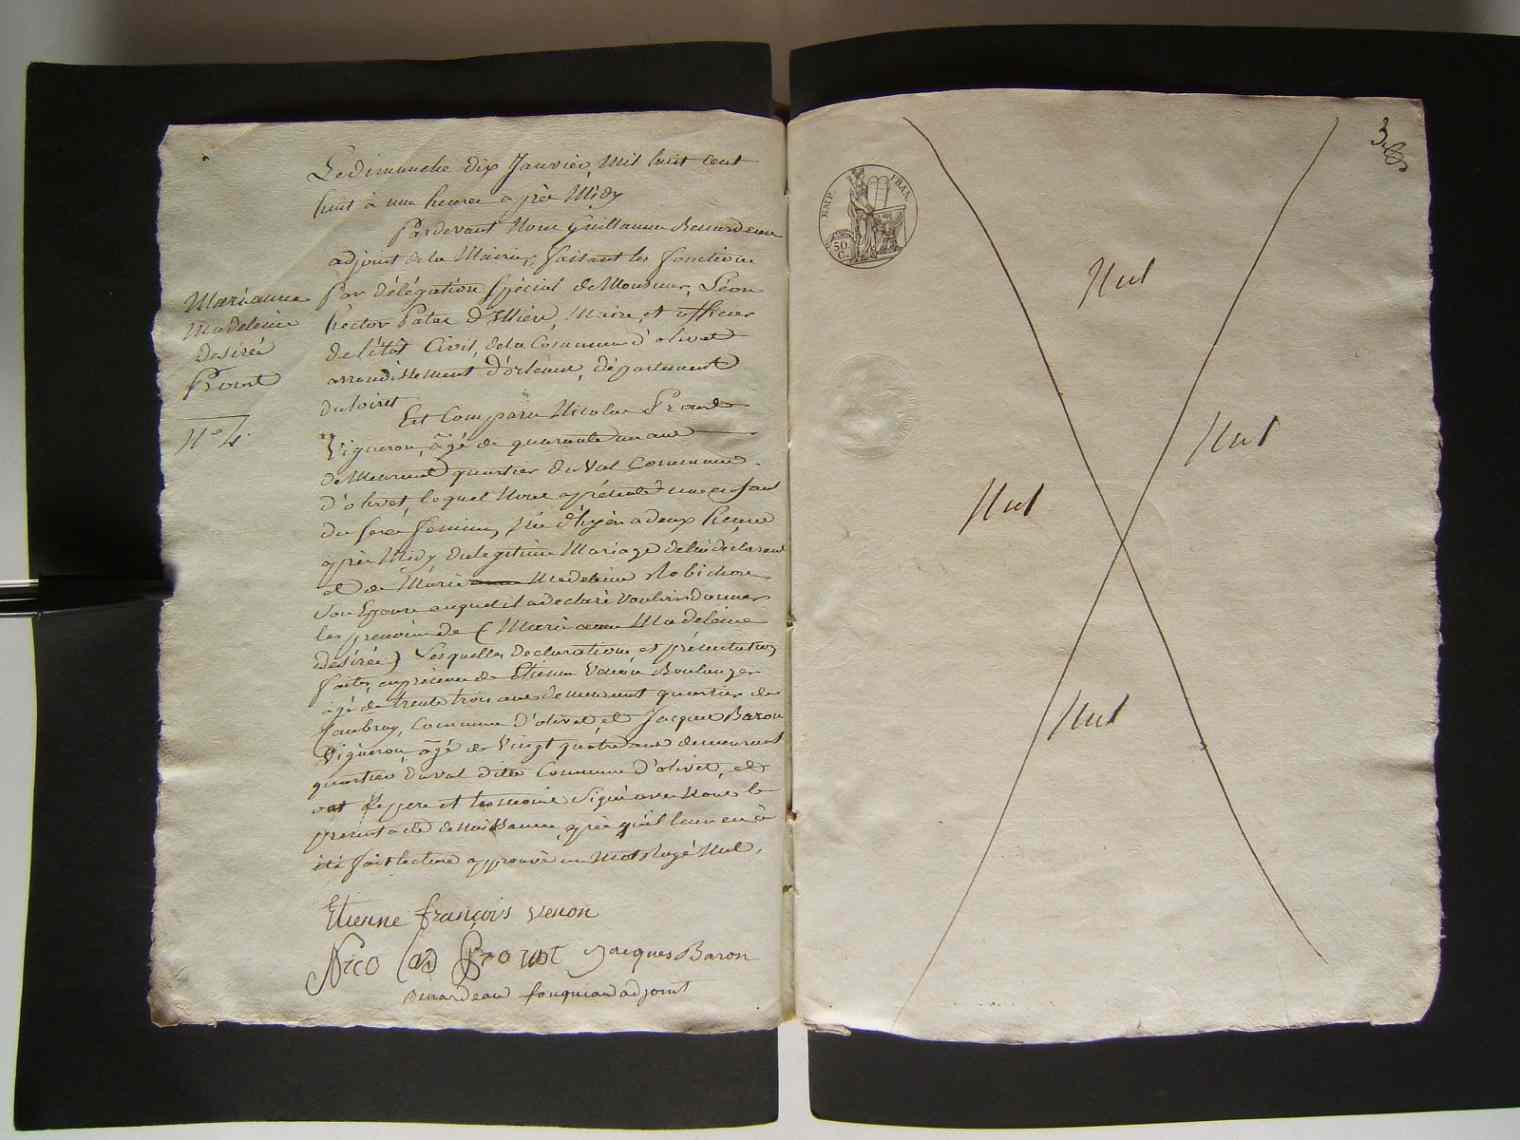 Le dimanche dix Janvier, Mil huit cent
huit à une heure a près Midy
Pardevant Nous Guillaume Benardeau
adjoint de la Mairie, faisant les fonctions
par délégation spécial de Monsieur, Léon
hector Patas d'Illiers, Maire, et officier
de l'état Civil, de la Commune d'olivet
arrondissement d'orléans, département
du loiret
Est Comparu Nicolas Prout
Vigneron, âgé de quarante un ans
demeurant quartier du Val Commune
d'olivet, lequel Nous a présenté une enfant
du sexe féminin, née d'hyer a deux heures
après Midy du légitime Mariage de lui déclarant
et de Marie Madeleine Robichon
Son Epouse auquel il a déclaré Vouloir donner
les prenoms de (Marie anne Madeleine
désirée) Lesquelles déclaration et présentation
faites en présence de Etienne Venon Boulanger
âgé de trente trois ans demeurant quartier de
Commune d'olivet et Jacques Baron
Vigneron, âgé de Vingt quatre ans demeurant
quartier du val dite Commune d'olivet, et
ont le pere et temoins Signé avec Nous le
présent acte de Naissance, après qu'il leur en à
été fait lecture approuvé un Mot Rayé Nul.
Marianne
Madeleine
désirée
Prout
N° 4.
Etienne françois venon
Nicolas Prout Jacques Baron
Benardeau adjoint
3
EMP. FRAN.
50
C.
Nul
Nul
Nul
Nul